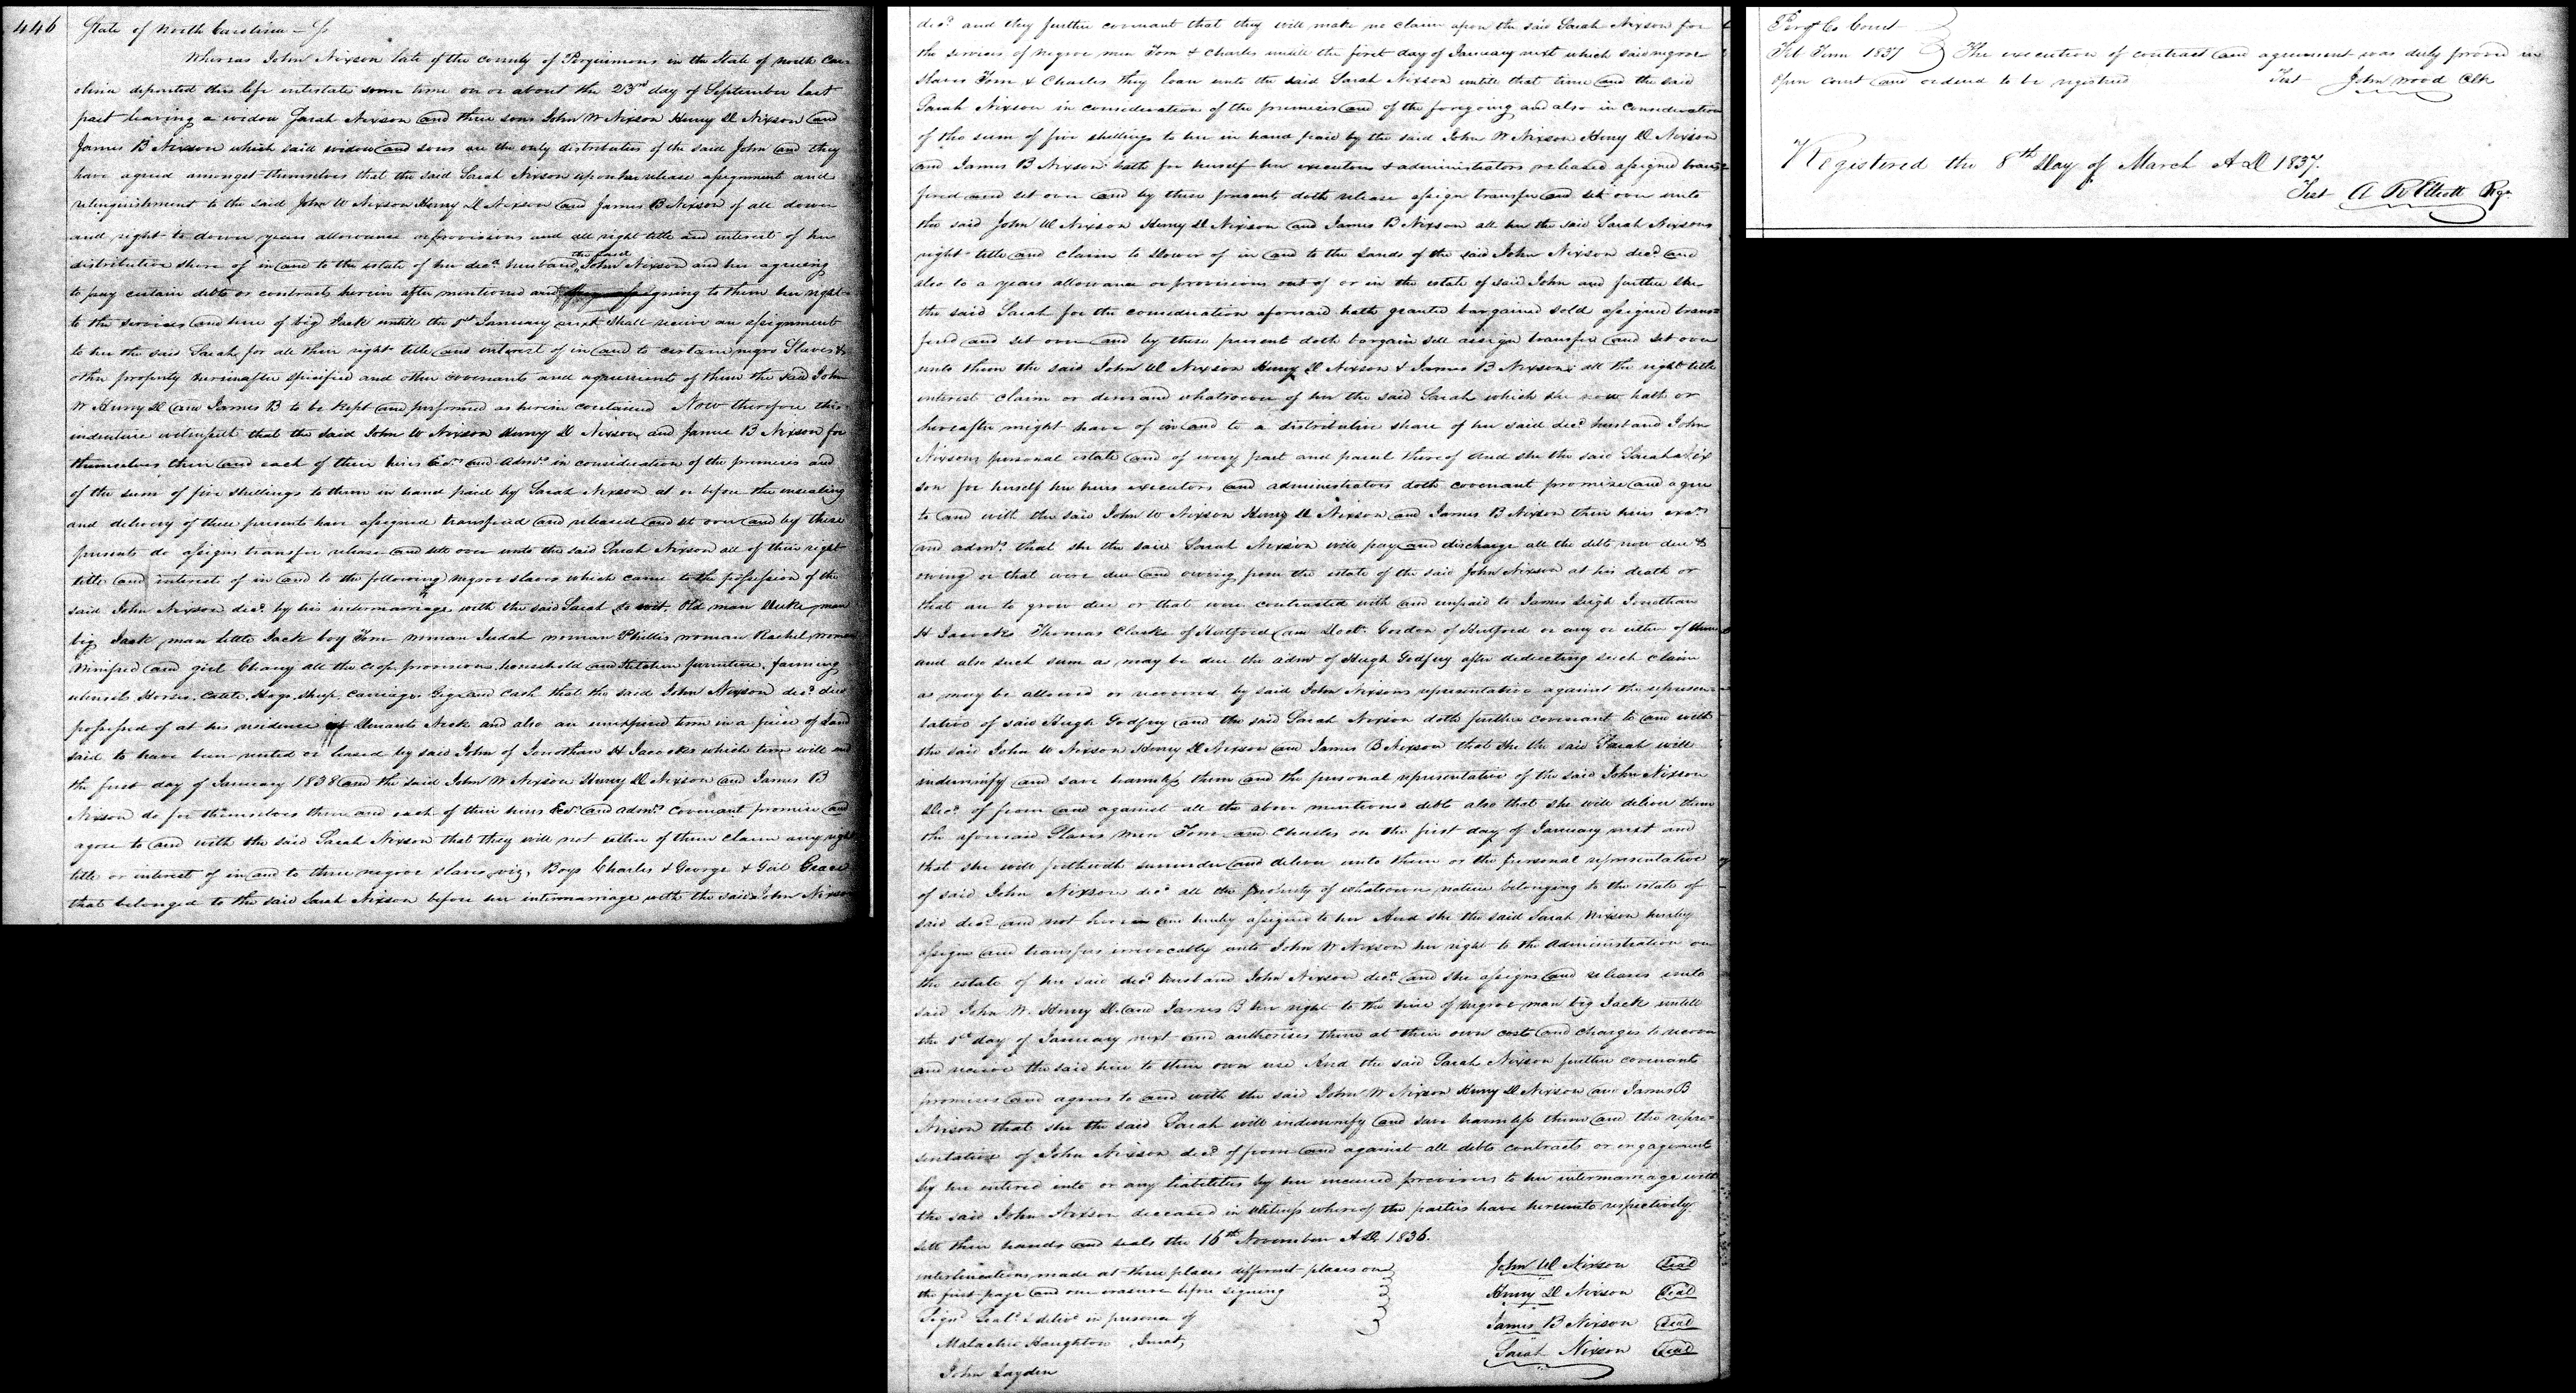 446
State of North Carolina — Ss
Whereas John Nixson late of the county of Perquimons in the State of North Car-
olina departed this life intestate some time on or about the 23rd day of September last
past leaving a widow Sarah Nixson and three sons John W Nixson Henry D Nixson and
James B Nixson which said widow and sons are the only distributees of the said John and they
have agreed amongst themselves that the said Sarah Nixson upon her release assignment and
relinquishment to the said John W Nixson Henry D Nixson and James B Nixson of all dower
and right to dower years allowance or provisions and all right title and interest of her
distributive share of in and to the estate of her decd. husband the said John Nixson and her agreeing
to pay certain debts or contracts herein after mentioned and assigning to them her right
to the services and hire of big Jack untill the 1st January next shall receive an assignment
to her the said Sarah for all their right title and interest of in and to certain negro Slaves &
other property hereinafter specified and other covenants and agreements of them the said John
W Henry D and James B to be kept and performed as herein contained Now therefore this
indenture witnesseth that the said John W Nixson Henry D Nixson and James B Nixson for
themselves their and each of their heirs Exd. and Admrs. in consideration of the premises and
of the sum of five shellings to them in hand paid by Sarah Nixson at or before the ensealing
and delivery of these presents have assigned transfered and released and set over and by these
presents do assign transfer release and sett over unto the said Sarah Nixson all of their right
title and interest of in and to the following negroe slaves which came to the possession of the
said John Nixson decd. by his intermarriage with the said Sarah to wit. Old man Duke, man
big Jack, man little Jack boy Tom woman Judah woman Phillis woman Rachel, woman
Winifred and girl Chany all the crop, provisions, household and Kitchen furniture, farming
utensils Horses, Cattle, Hogs, Sheep, Carriage, Gigs and Cash that the said John Nixson decd. died
possessed of at his residence at Durants Neck and also an unexpired term in a piece of Land
said to have been rented or leased by said John of Jonathan H Jacocks which term will end
the first day of January 1838 and the said John W Nixson Henry D Nixson and James B
Nixson do for themselves their and each of their heirs Exd. and admrs. Covenant promise and
agree to and with the said Sarah Nixson that they will not either of them claim any right
title or interest of in and to three negroe slaves, viz, Boys Charles & George & Girl Grace
that belonged to the said Sarah Nixson before her intermarriage with the said John Nixson
decd. and they further covenant that they will make no claim upon the said Sarah Nixson for
the services of negroe men Tom & Charles untill the first day of January next which said negroe
slaves Tom & Charles they loan unto the said Sarah Nixson untill that time and the said
Sarah Nixson in consideration of the premises and of the foregoing and also in consideration
of the sum of five shellings to her in hand paid by the said John W Nixson Henry D Nixson
and James B Nixson hath for herself her executors & administrators released assigned trans-
fered and set over and by these presents doth release assign transfer and set over unto
the said John W Nixson Henry D Nixson and James B Nixson all her the said Sarah Nixsons
right title and claim to Dower of in and to the Lands of the said John Nixson decd. and
also to a years allowance or provisions out of or in the estate of said John and further she
the said Sarah for the consideration aforesaid hath granted bargained sold assigned trans-
fered and set over and by these presents doth bargain sell assign transfer and set over
unto them the said John W Nixson Henry D Nixson & James B Nixson all the right title
interest claim or demand whatsoever of her the said Sarah which she now hath or
hereafter might have of in and to a distributive share of her said decd. husband John
Nixsons personal estate and of every part and parcel thereof and she the said Sarah Nix
son for herself her heirs executors and administrators doth covenant promise and agree
to and with the said John W Nixson Henry D Nixson and James B Nixson their heirs exrs.
and admrs. that she the said Sarah Nixson will pay and discharge all the debts now due &
owing or that were due and owing from the estate of the said John Nixson at his death or
that are to grow due or that were contracted with and unpaid to James Leigh Jonathan
H Jacocks Thomas Clarke of Hertford and Doct. Gordon of Hertford or any or either of them
and also such sum as may be due the admr. of Hugh Godfrey after deducting such claim
as may be allowed or recovered by said John Nixsons representative against the represen-
tative of said Hugh Godfrey and the said Sarah Nixson doth further covenant to and with
the said John W Nixson Henry D Nixson and James B Nixson that she the said Sarah will
indemnify and save harmless them and the personal representative of the said John Nixson
Decd. of from and against all the above mentioned debts also that she will deliver them
the aforesaid Slaves men Tom and Charles on the first day of January next and
that she will forthwith surrender and deliver unto them or the personal representative
of said John Nixson decd. all the property of whatsoever nature belonging to the estate of
said decd. and not herein and hereby assigned to her And she the said Sarah Nixson hereby
assigns and transfers irrevocably unto John W Nixson her right to the Administration on
the estate of her said decd. husband John Nixson decd. and she assigns and releases unto
said John W. Henry D. and James B her right to the hire of negroe man big Jack untill
the 1st day of January next and authorises them at their own costs and charges to recover
and receive the said hire to their own use And the said Sarah Nixson further covenants
promises and agrees to and with the said John W Nixson Henry D Nixson and James B
Nixson that she the said Sarah will indemnify and save harmless them and the repre-
sentative of John Nixson decd. of from and against all debts contracts or engagements
by her entered into or any liabilities by her incurred previous to her intermarriage with
the said John Nixson deceased in Witness whereof the parties have hereunto respectively
sett their hands and seals the 16th November A D. 1836.
interlineations made at three places different places on
the first page and one erasure before signing
Signd. Seald. & delivd. in presence of
Malachi Haughton Jurat,
John Layden
John W Nixson Seal
Henry D Nixson Seal
James B Nixson Seal
Sarah Nixson Seal
Perqs Co Court
Feb Term 1837 } The execution of contract and agreement was duly proved in
open court and ordered to be registered Test John Wood Clk
Registered the 8th Day of March A D 1837.
Test A R Elliott Regr